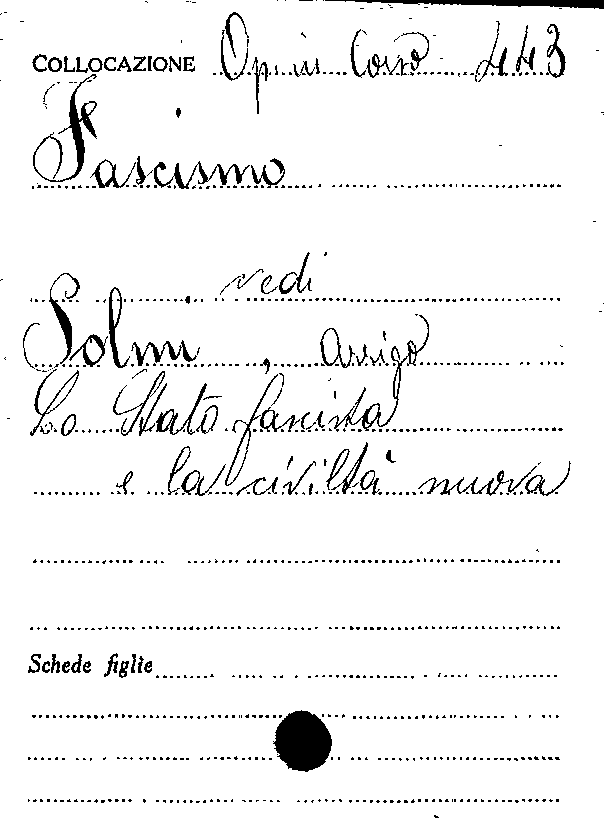 COLLOCAZIONE Op. in Corso 443
Fascismo
vedi
Solmi, Arrigo
Lo Stato fascista
e la civiltà nuova
Schede figlie